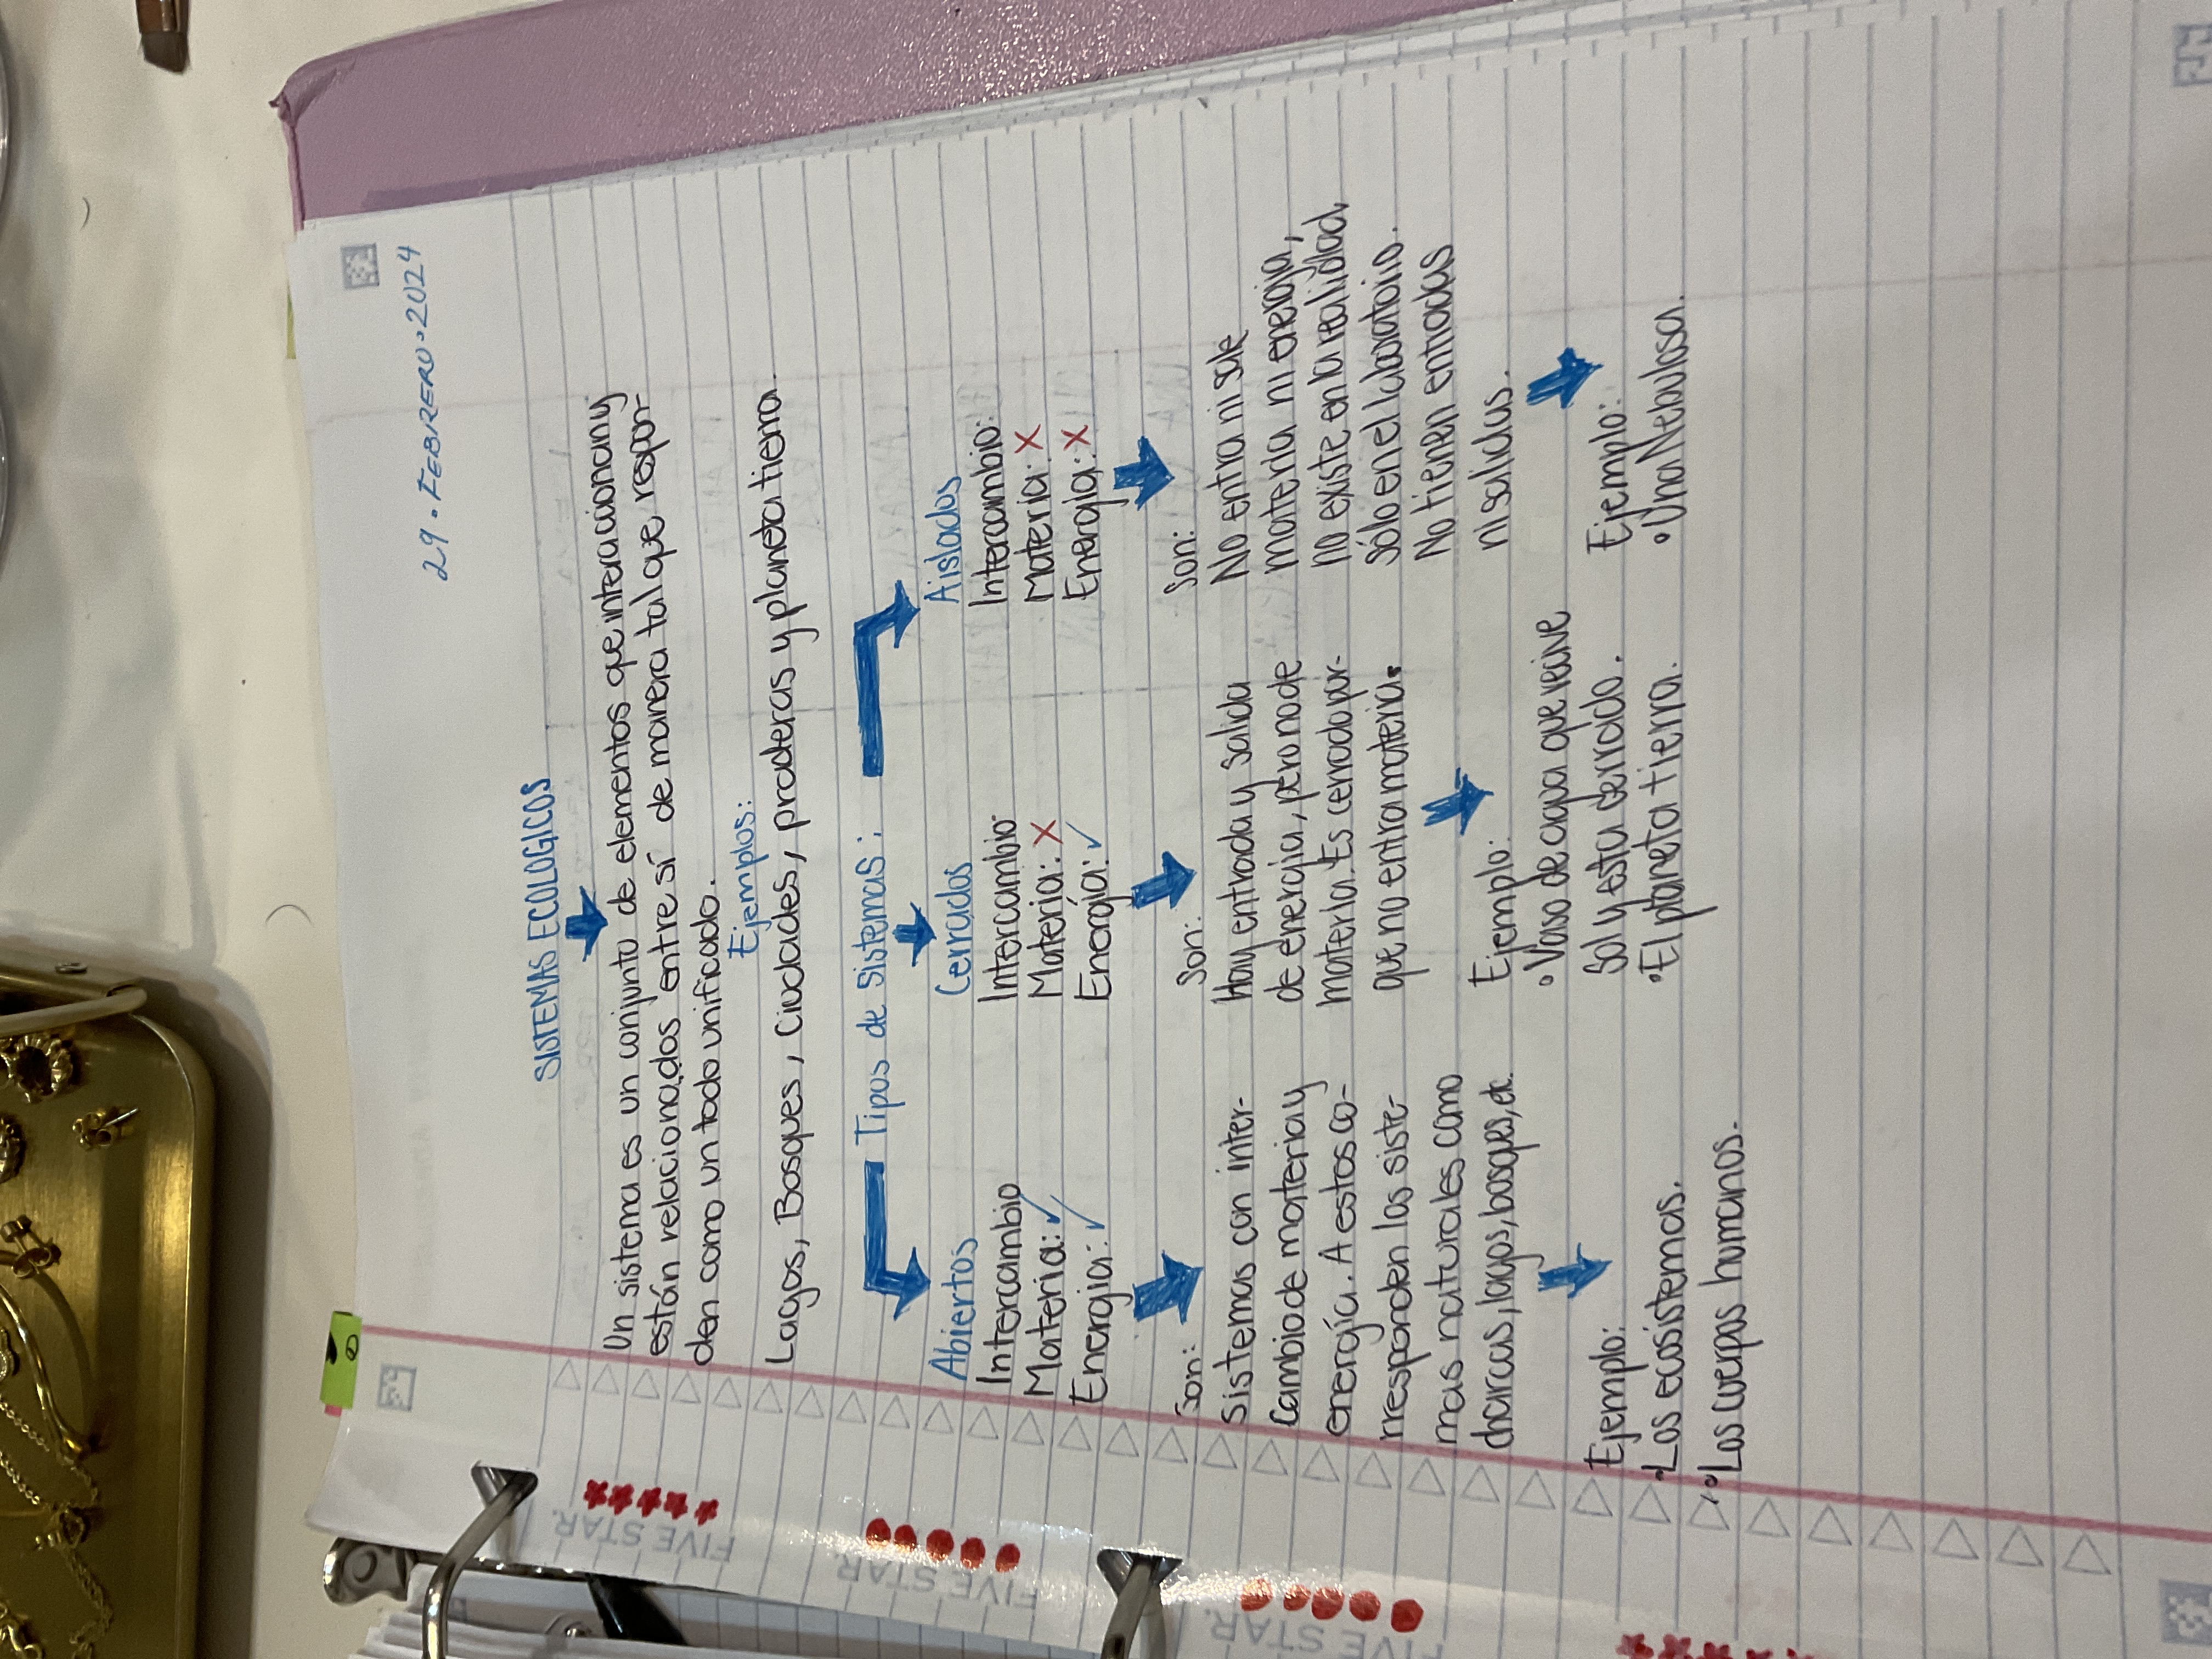 29 • FEBRERO • 2024
SISTEMAS ECOLOGICOS
Un sistema es un conjunto de elementos que interaccionan y
están relacionados entre sí de manera tal que respon-
den como un todo unificado.
Ejemplos:
Lagos, Bosques, Ciudades, praderas y planeta tierra.
Tipos de sistemas:
Abiertos
Intercambio
Materia: ✓
Energia: ✓
Son:
Sistemas con inter-
cambio de materia y
energía. A estos co-
rresponden los siste-
mas naturales como
charcas, lagos, bosques, etc.
Ejemplo:
• Los ecosistemas.
• Los cuerpos humanos.
Cerrados
Intercambio
Materia: X
Energía: ✓
Son:
Hay entrada y salida
de energia, pero no de
materia. Es cerrado por-
que no entra materia.
Ejemplo:
• Vaso de agua que recive
Sol y esta cerrado.
• El planeta tierra.
Aislados
Intercambio:
Materia: X
Energía: X
Son:
No entra ni sale
materia ni energia,
no existe en la realidad
sólo en el laboratorio.
No tienen entradas
ni salidas.
Ejemplo:
• Una Nebulosa.
FIVE STAR.
FIVE STAR.
FIVE STAR.